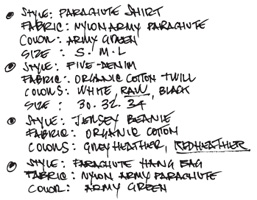 STYLE: PARACHUTE SHIRT
FABRIC: NYLON ARMY PARACHUTE
COLOR: ARMY GREEN
SIZE : S. M. L
STYLE: FIVE-DENIM
FABRIC: ORGANIC COTTON TWILL
COLORS: WHITE, RAW, BLACK
SIZE : 30. 32. 34
STYLE: JERSEY BEANIE
FABRIC: ORGANIC COTTON
COLORS: GREY HEATHER, RED HEATHER
STYLE: PARACHUTE HANG BAG
FABRIC: NYLON ARMY PARACHUTE
COLOR: ARMY GREEN